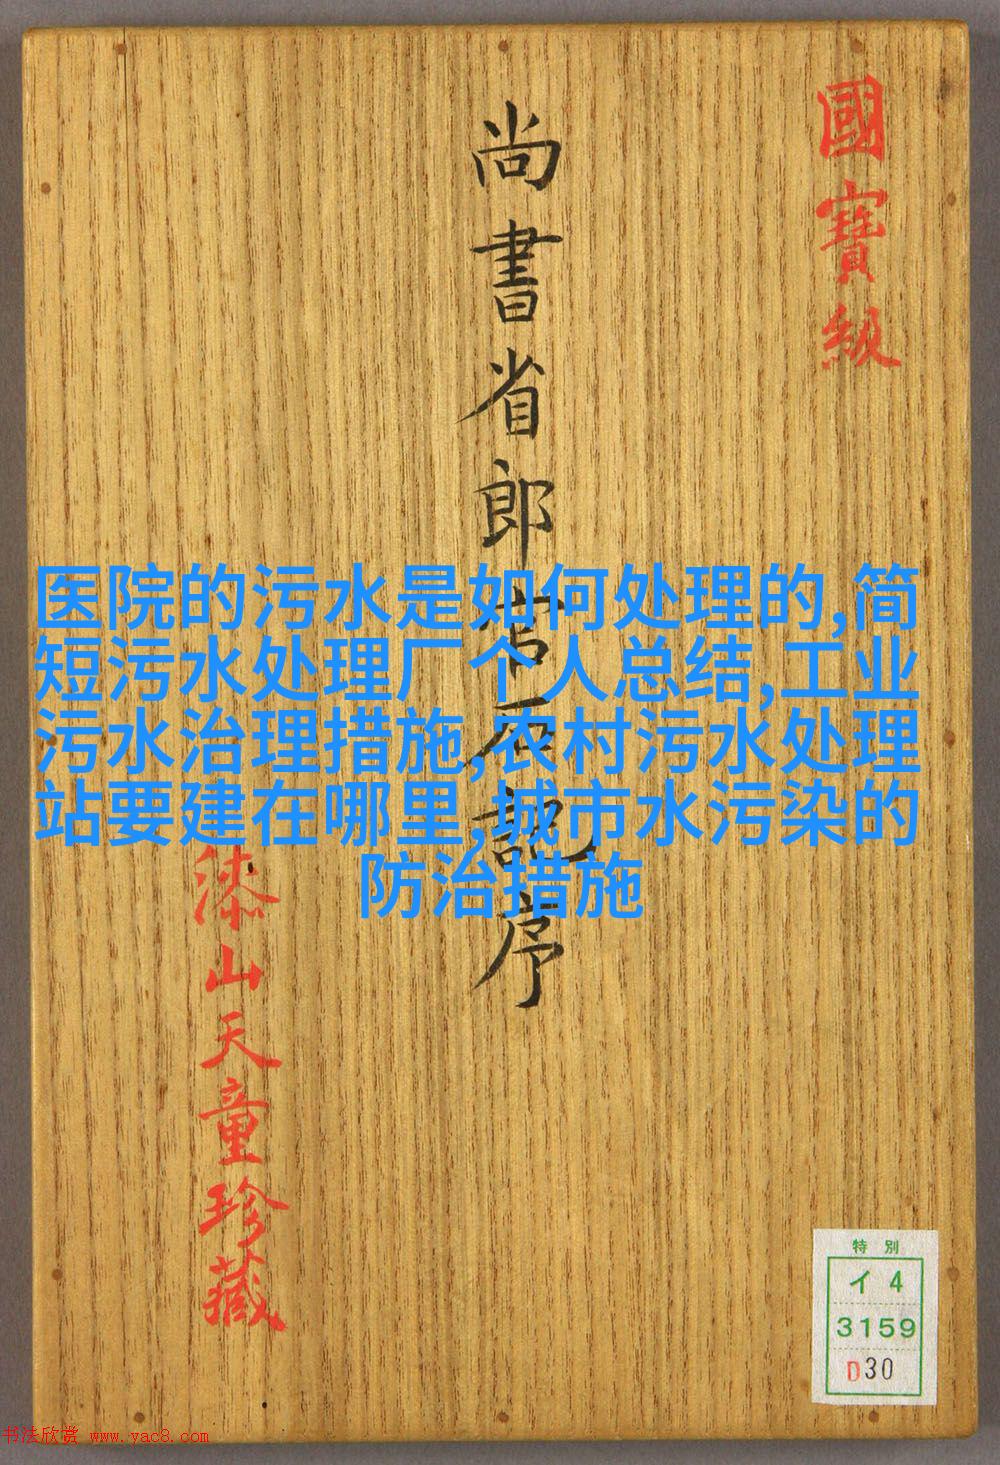 國寶級
尚書省郎官石記序
医院的污水是如何处理的,简
短污水处理厂个人总结,工业
污水治理措施,农村污水处理
站要建在哪里,城市水污染的
防治措施
漆山天童珍藏
特別
イ4
3159
D30
书法欣赏 www.yac8.com